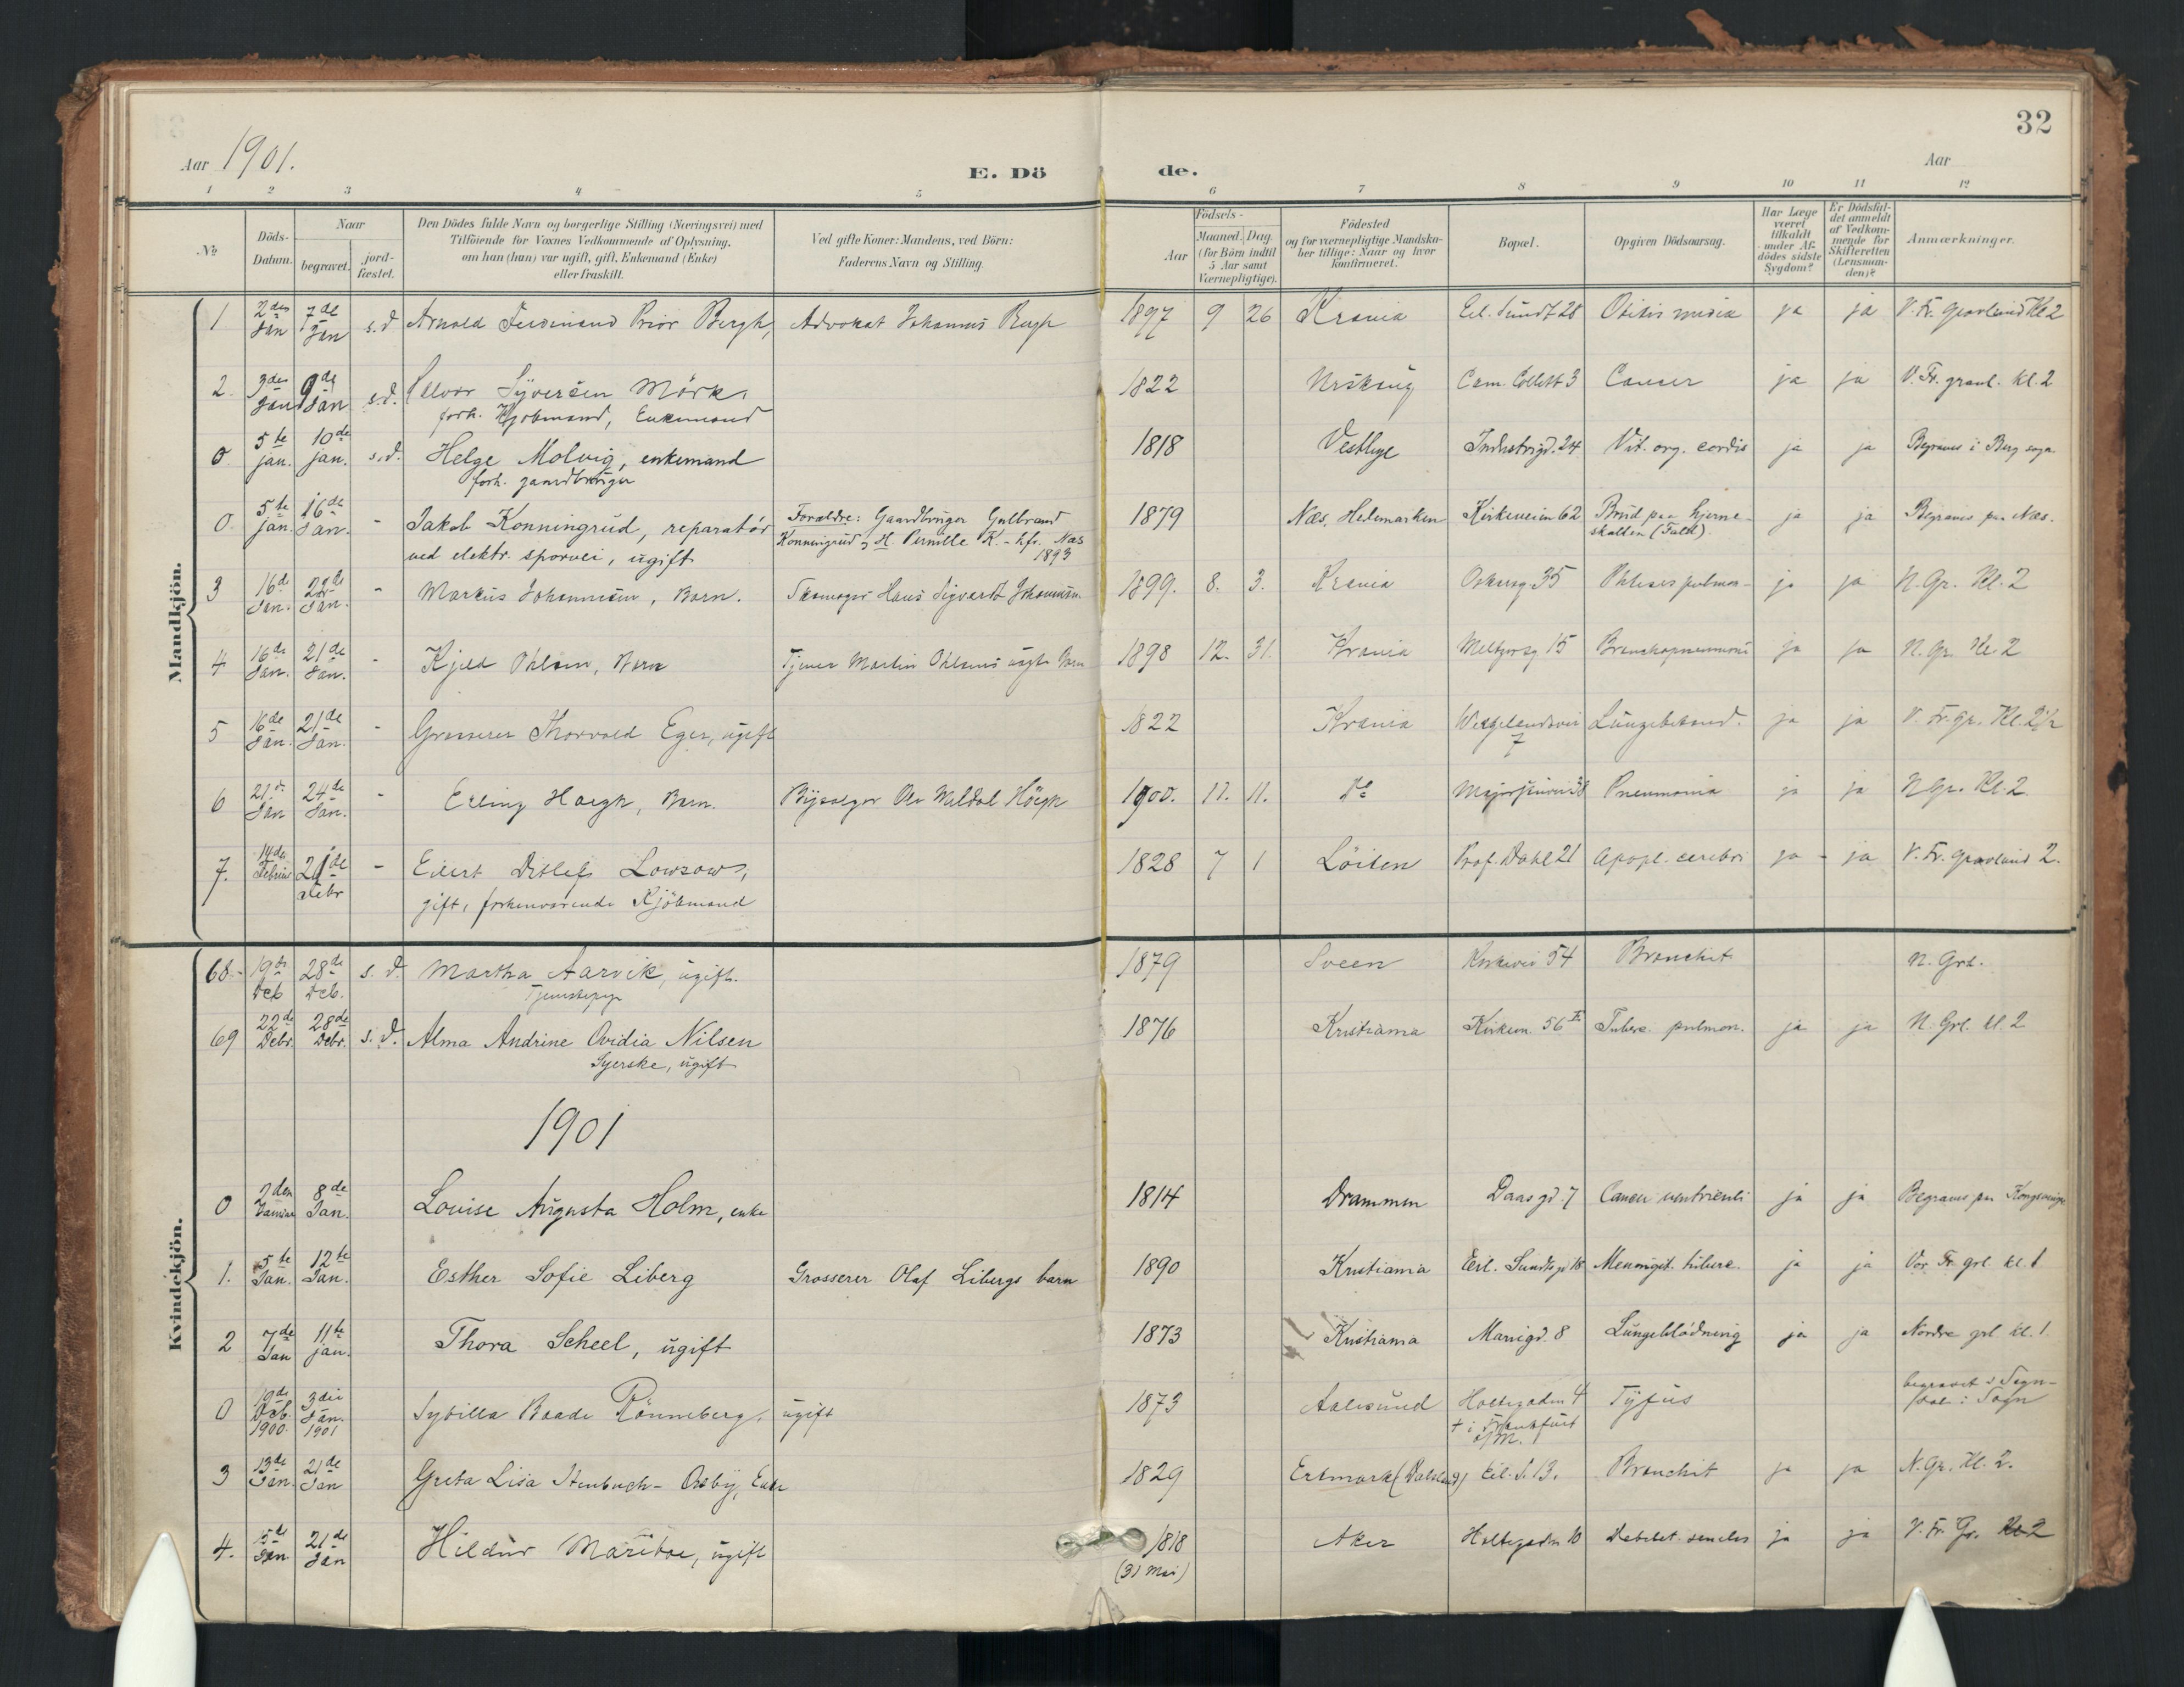 32
Aar 1901.
E. Dö de.
Aar
1 2 3 4 5 6 7 8 9 10 11 12
No
Döds-Datum.
Naar
begravet.
jord-fæstet.
Den Dödes fulde Navn og borgerlige Stilling (Næringsvei) med
Tilföiende for Voxnes Vedkommende af Oplysning,
om han (hun) var ugift, gift, Enkemand (Enke)
eller fraskilt.
Ved gifte Koner: Mandens, ved Börn:
Faderens Navn og Stilling.
Födsels-
Aar
Maaned. Dag.
(for Börn indtil
5 Aar samt
Værnepligtige).
Födested
og for værnepligtige Mandska-
ber tillige: Naar og hvor
konfirmeret.
Bopæl.
Opgiven Dödsaarsag.
Har Læge
været
tilkaldt
under Af-
dödes sidste
Sygdom?
Er Dödsfal-
det anmeldt
af Vedkom-
mende for
Skifteretten
(Lensman-
den)?
Anmærkninger.
Mandkjön.
1 2den Jan 7de Jan s.d. Arnold Ferdinand Prior Bergh, Advokat Johannes Bergh 1897 9 26 Krania Eil. Sundt 28 Otitis media ja ja V. Fr. Gravlund Kl 2
2. 3den Jan 9de Jan s.d. Syversen Mörk, 1822 Urskoug Cam. Collett 3 Cancer ja ja V. Fr. gravl. kl. 2
forh. Kjøbmand, Enkemand
0 5te jan. 10de jan. s.d. Helge Molvig, enkemand 1818 Vestbye Industrigd. 24 Vit. org. cordis ja ja Begraves i Berg sogn
forh. gaardbruger
0. 5te jan. 16de Jan. - Jakob Konningrud, reparatör Forældre: Gaardbruger Gulbrand 1879 Næs, Hedemarken Kirkeveien 62 Brud paa hjerne- ja ja Begraves paa Næs.
ved elektr. sporvei, ugift Konningrud og H. Pernille K. - hfr. Næs 1893 skallen (Fald).
3 16de Jan. 22de Jan. - Markus Johannesen, Barn. Skomager Hans Sigvardt Johannesen. 1899. 8. 3. Krania Oskarsg. 35 Phtisis pulmon. ja ja N. Gr. Kl. 2
4 16de Jan. 21de Jan. - Kjeld Ohlsen, Barn Tjener Martin Ohlsens Barn 1898 12. 31. Krania Meltzersg 15 Bronchopneumoni ja ja N. Gr. Kl. 2
5 16de Jan. 21de Jan. - Grosserer Thorvald Eger, ugift 1822 Krania Wergelandsvei 7 Lungebetænd. ja ja V. Fr. Gr. Kl. 2 1/2
6 21de Jan 24de Jan. - Erling Høegh, Barn. Ole Meldal Höegh 1900. 11. 11. do Majorstuvei 38 Pneumonia ja ja N Gr. Kl. 2.
7. 14de Februar 21de Febr - Eilert Ditlef Lowzow, 1828 7 1 Löiten Prof. Dahl 21 Apopl. cerebri ja - ja V. Fr. Gravlund 2.
gift, forhenværende Kjöbmand
Kvindekjön.
68.- 19de Deb 28de Deb. s. d. Martha Aarvik, ugift. 1879 Sveen Kirkevei 54 Bronchit N. Grl.
Tjenestepige
69 22de Debr. 28de Debr. s. d. Alma Andrine Ovidia Nilsen 1876 Kristiania Kirkevn. 56 Tuberc. pulmon. ja ja N. Grl. kl. 2
Syerske, ugift
1901
0 2den Januar 8de Jan. Louise Augusta Holm, enke 1814 Drammen Daasgd. 7 Cancer ventriculi ja ja Begraves paa Kongsvinger
1. 5te Jan. 12te Jan. Esther Sofie Liberg Grosserer Olaf Libergs barn 1890 Kristiania Eil. Sundtsgd 18 Meningit. tuberc. ja ja Vor Fr. grl. kl. 1
2 7de Jan 11te jan. Thora Scheel, ugift 1873 Kristiania Mariigd. 8 Lungeblödning ja ja Nordre grl. kl. 1.
0 19de Deb. 1900. 3die Jan. 1901 Sybilla Baade Rönneberg, ugift 1873 Aalesund Holtegaden 4 Tyfus begravet i Sogn-
+ i Frankfurt a/M. dal i Sogn
3 13de Jan. 21de Jan Greta Lisa Stenbugh - Ordby, Enke 1829 Ertemark (Dalsland) Eil. S. 13. Bronchit ja ja N. Gr. Kl. 2.
4. 15de Jan 21de Jan Hildur Mariboe, ugift 1818 Aker Holtegaden 10 Debilit. senilis ja ja V. Fr. Gr. Kl 2
(31 Mai)